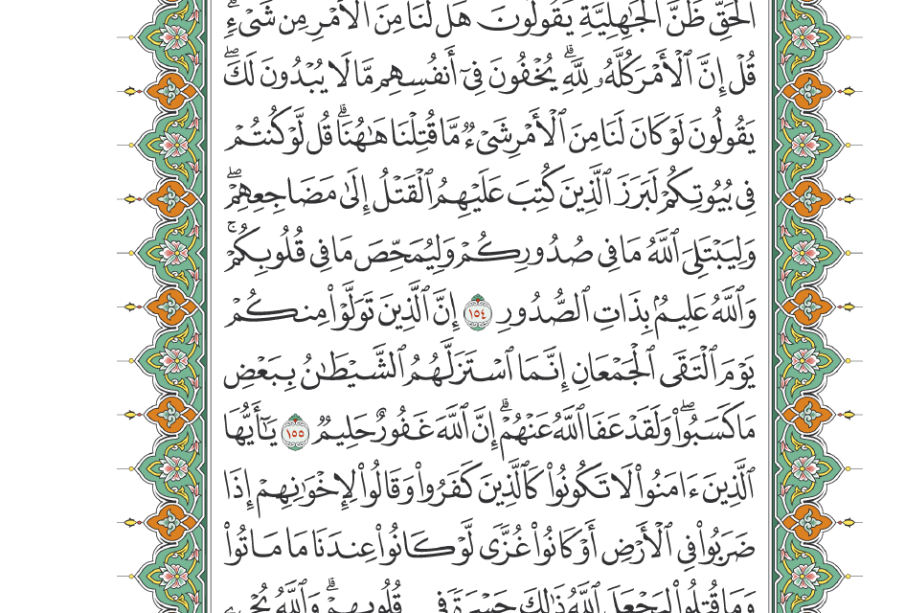 ٱلْحَقِّ ظَنَّ ٱلْجَٰهِلِيَّةِ يَقُولُونَ هَل لَّنَا مِنَ ٱلْأَمْرِ مِن شَىْءٍۗ
قُلْ إِنَّ ٱلْأَمْرَ كُلَّهُۥ لِلَّهِۗ يُخْفُونَ فِىٓ أَنفُسِهِم مَّا لَا يُبْدُونَ لَكَۖ
يَقُولُونَ لَوْ كَانَ لَنَا مِنَ ٱلْأَمْرِ شَىْءٌ مَّا قُتِلْنَا هَٰهُنَاۗ قُل لَّوْ كُنتُمْ
فِى بُيُوتِكُمْ لَبَرَزَ ٱلَّذِينَ كُتِبَ عَلَيْهِمُ ٱلْقَتْلُ إِلَىٰ مَضَاجِعِهِمْۖ
وَلِيَبْتَلِىَ ٱللَّهُ مَا فِى صُدُورِكُمْ وَلِيُمَحِّصَ مَا فِى قُلُوبِكُمْۚ
وَٱللَّهُ عَلِيمٌۢ بِذَاتِ ٱلصُّدُورِ ١٥٤ إِنَّ ٱلَّذِينَ تَوَلَّوْا۟ مِنكُمْ
يَوْمَ ٱلْتَقَى ٱلْجَمْعَانِ إِنَّمَا ٱسْتَزَلَّهُمُ ٱلشَّيْطَٰنُ بِبَعْضِ
مَا كَسَبُوا۟ۖ وَلَقَدْ عَفَا ٱللَّهُ عَنْهُمْۗ إِنَّ ٱللَّهَ غَفُورٌ حَلِيمٌ ١٥٥ يَٰٓأَيُّهَا
ٱلَّذِينَ ءَامَنُوا۟ لَا تَكُونُوا۟ كَٱلَّذِينَ كَفَرُوا۟ وَقَالُوا۟ لِإِخْوَٰنِهِمْ إِذَا
ضَرَبُوا۟ فِى ٱلْأَرْضِ أَوْ كَانُوا۟ غُزًّى لَّوْ كَانُوا۟ عِندَنَا مَا مَاتُوا۟
وَمَا قُتِلُوا۟ لِيَجْعَلَ ٱللَّهُ ذَٰلِكَ حَسْرَةً فِى قُلُوبِهِمْۗ وَٱللَّهُ يُحْىِۦ